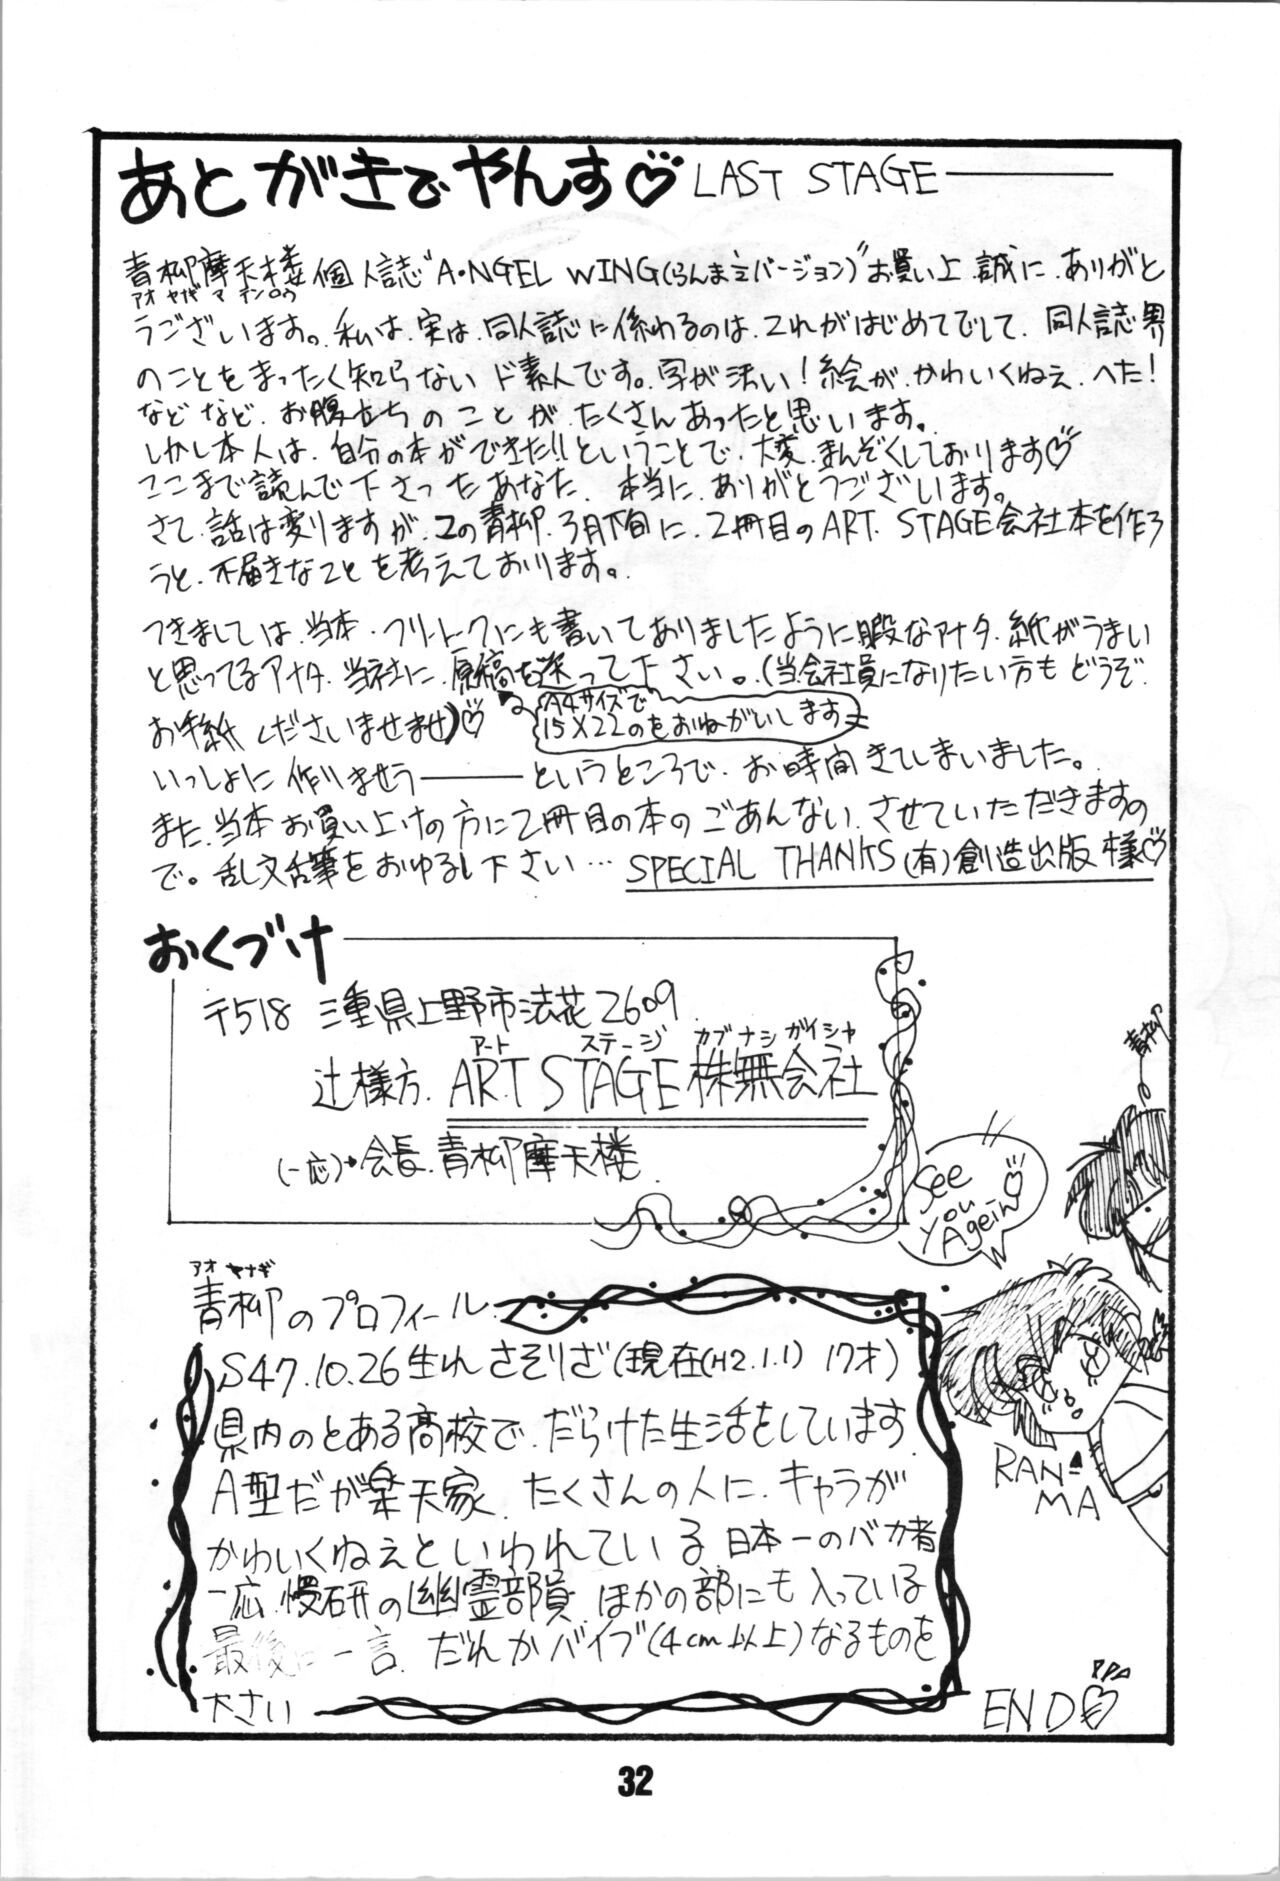 あとがきでやんす♡ LAST STAGE
青柳摩天楼個人誌"A・NGEL WING(らんま½バージョン)"お買い上、誠に、ありがと
アオ ヤナギ マ テンロウ
うございます。私は、実は、同人誌に係わるのは、これがはじめてでして、同人誌界
のことをまったく知らないド素人です。字が汚い!絵が、かわいくねぇ、へた!
などなど、お腹立ちのことが、たくさんあったと思います。
しかし本人は、自分の本ができた!!ということで、大変、まんぞくしております♡
ここまで読んで下さったあなた、本当に、ありがとうございます。
さて、話は変りますが、この青柳、3月下旬に、2冊目のART. STAGE会社本を作ろ
うと、不届きなことを考えております。
つきましては、当本・フリートークにも書いてありましたように暇なアナタ、紙がうまい
と思ってるアナタ、当社に、原稿を送って下さい。(当会社員になりたい方もどうぞ
お手紙くださいませませ)♡
A4サイズで
15×22のをおねがいします
いっしょに作りませう――というところで、お時間きてしまいました。
また、当本お買い上げの方に2冊目の本のごあんない、させていただきますの
で。乱文乱筆をおゆるし下さい… SPECIAL THANKS(有)創造出版様♡
おくづけ
〒518 三重県上野市法花2609
アート ステージ カブナシ ガイシャ
辻様方. ART STAGE 株無会社
(一応)・会長. 青柳摩天楼
青柳
See You Agein♡
RAN-MA
アオ ヤナギ
青柳のプロフィール.
S47.10.26生れ さそりざ(現在(H2.1.1) 17才)
県内のとある高校で、だらけた生活をしています
A型だが楽天家、たくさんの人に、キャラが
かわいくねぇといわれている日本一のバカ者
一応、漫研の幽霊部員、ほかの部にも入っている
最後に一言、だれかバイブ(4cm以上)なるものを
下さい
END♡
32